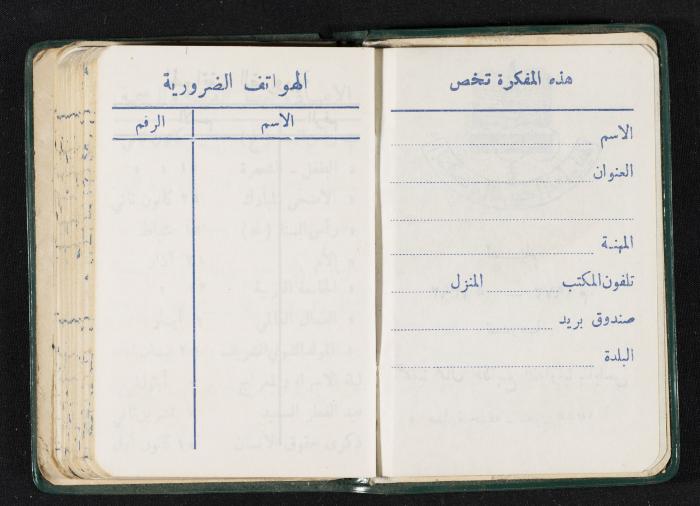 هذه المفكرة تخص
الاسم
العنوان
المهنة
تلفون المكتب المنزل
صندوق بريد
البلدة
الهواتف الضرورية
الاسم الرقم